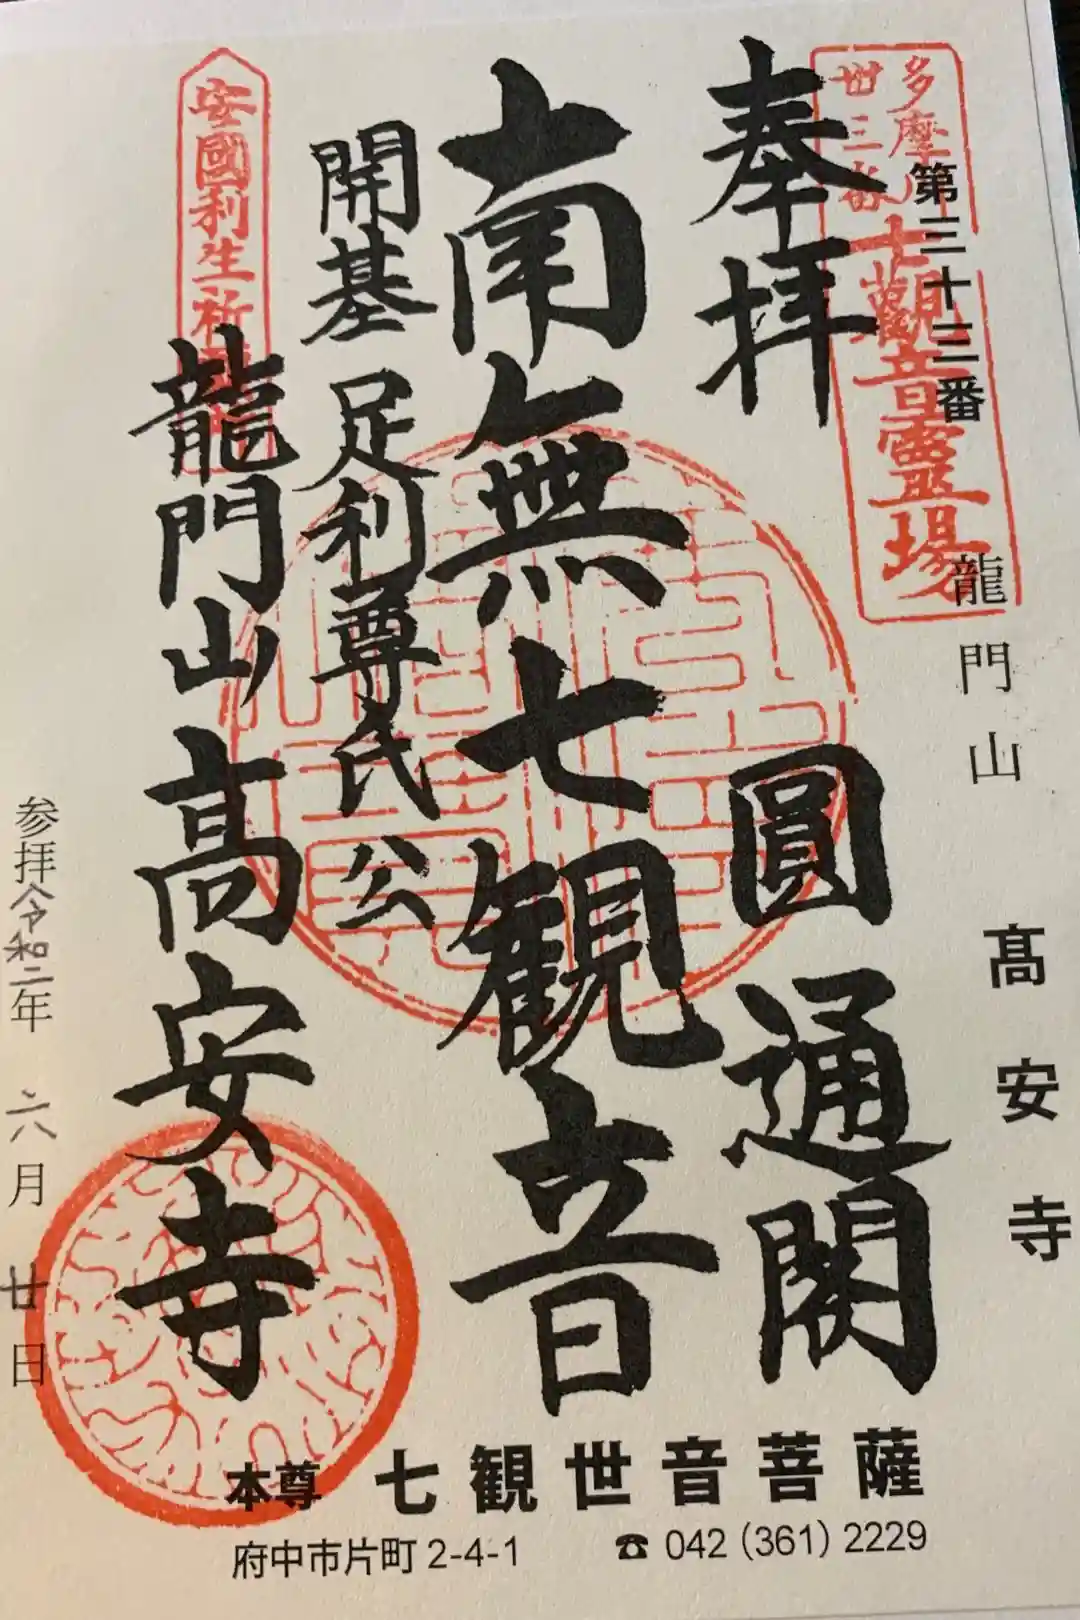 第三十二番
龍門山
髙安寺
多摩川
丗三番
七觀音靈場
奉拝
圓通閣
南無七観音
開基足利尊氏公
安國利生祈
龍門山高安寺
参拝令和二年六月廿日
本尊 七観世音菩薩
府中市片町 2-4-1 ☎ 042 (361) 2229